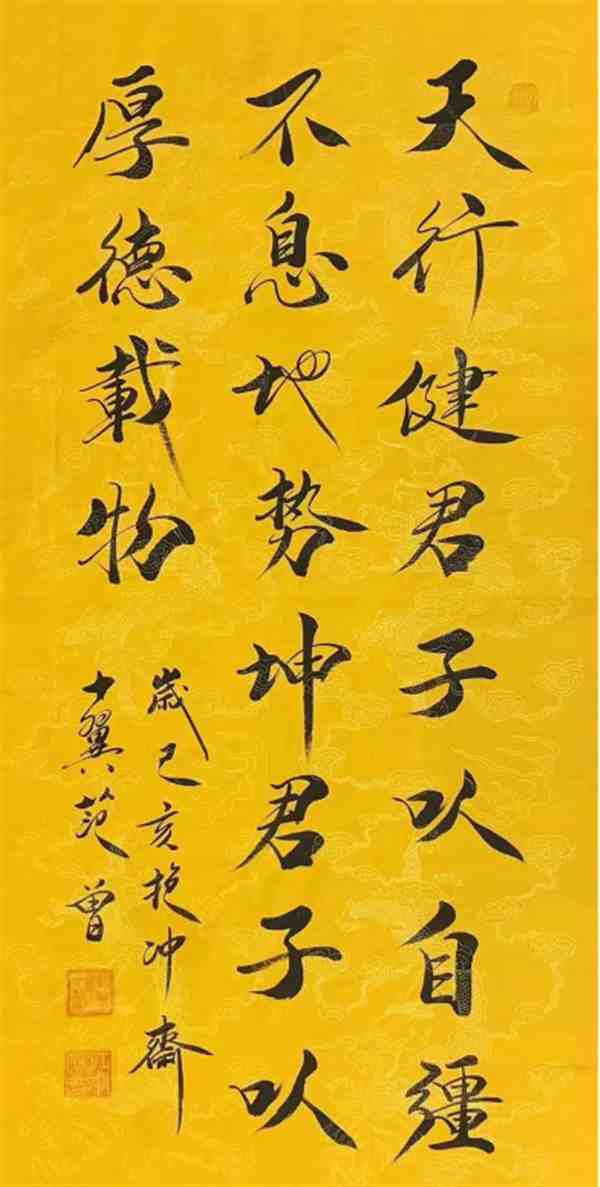 天行健君子以自疆
不息地势坤君子以
厚德载物
岁己亥抱冲斋
十翼范曾